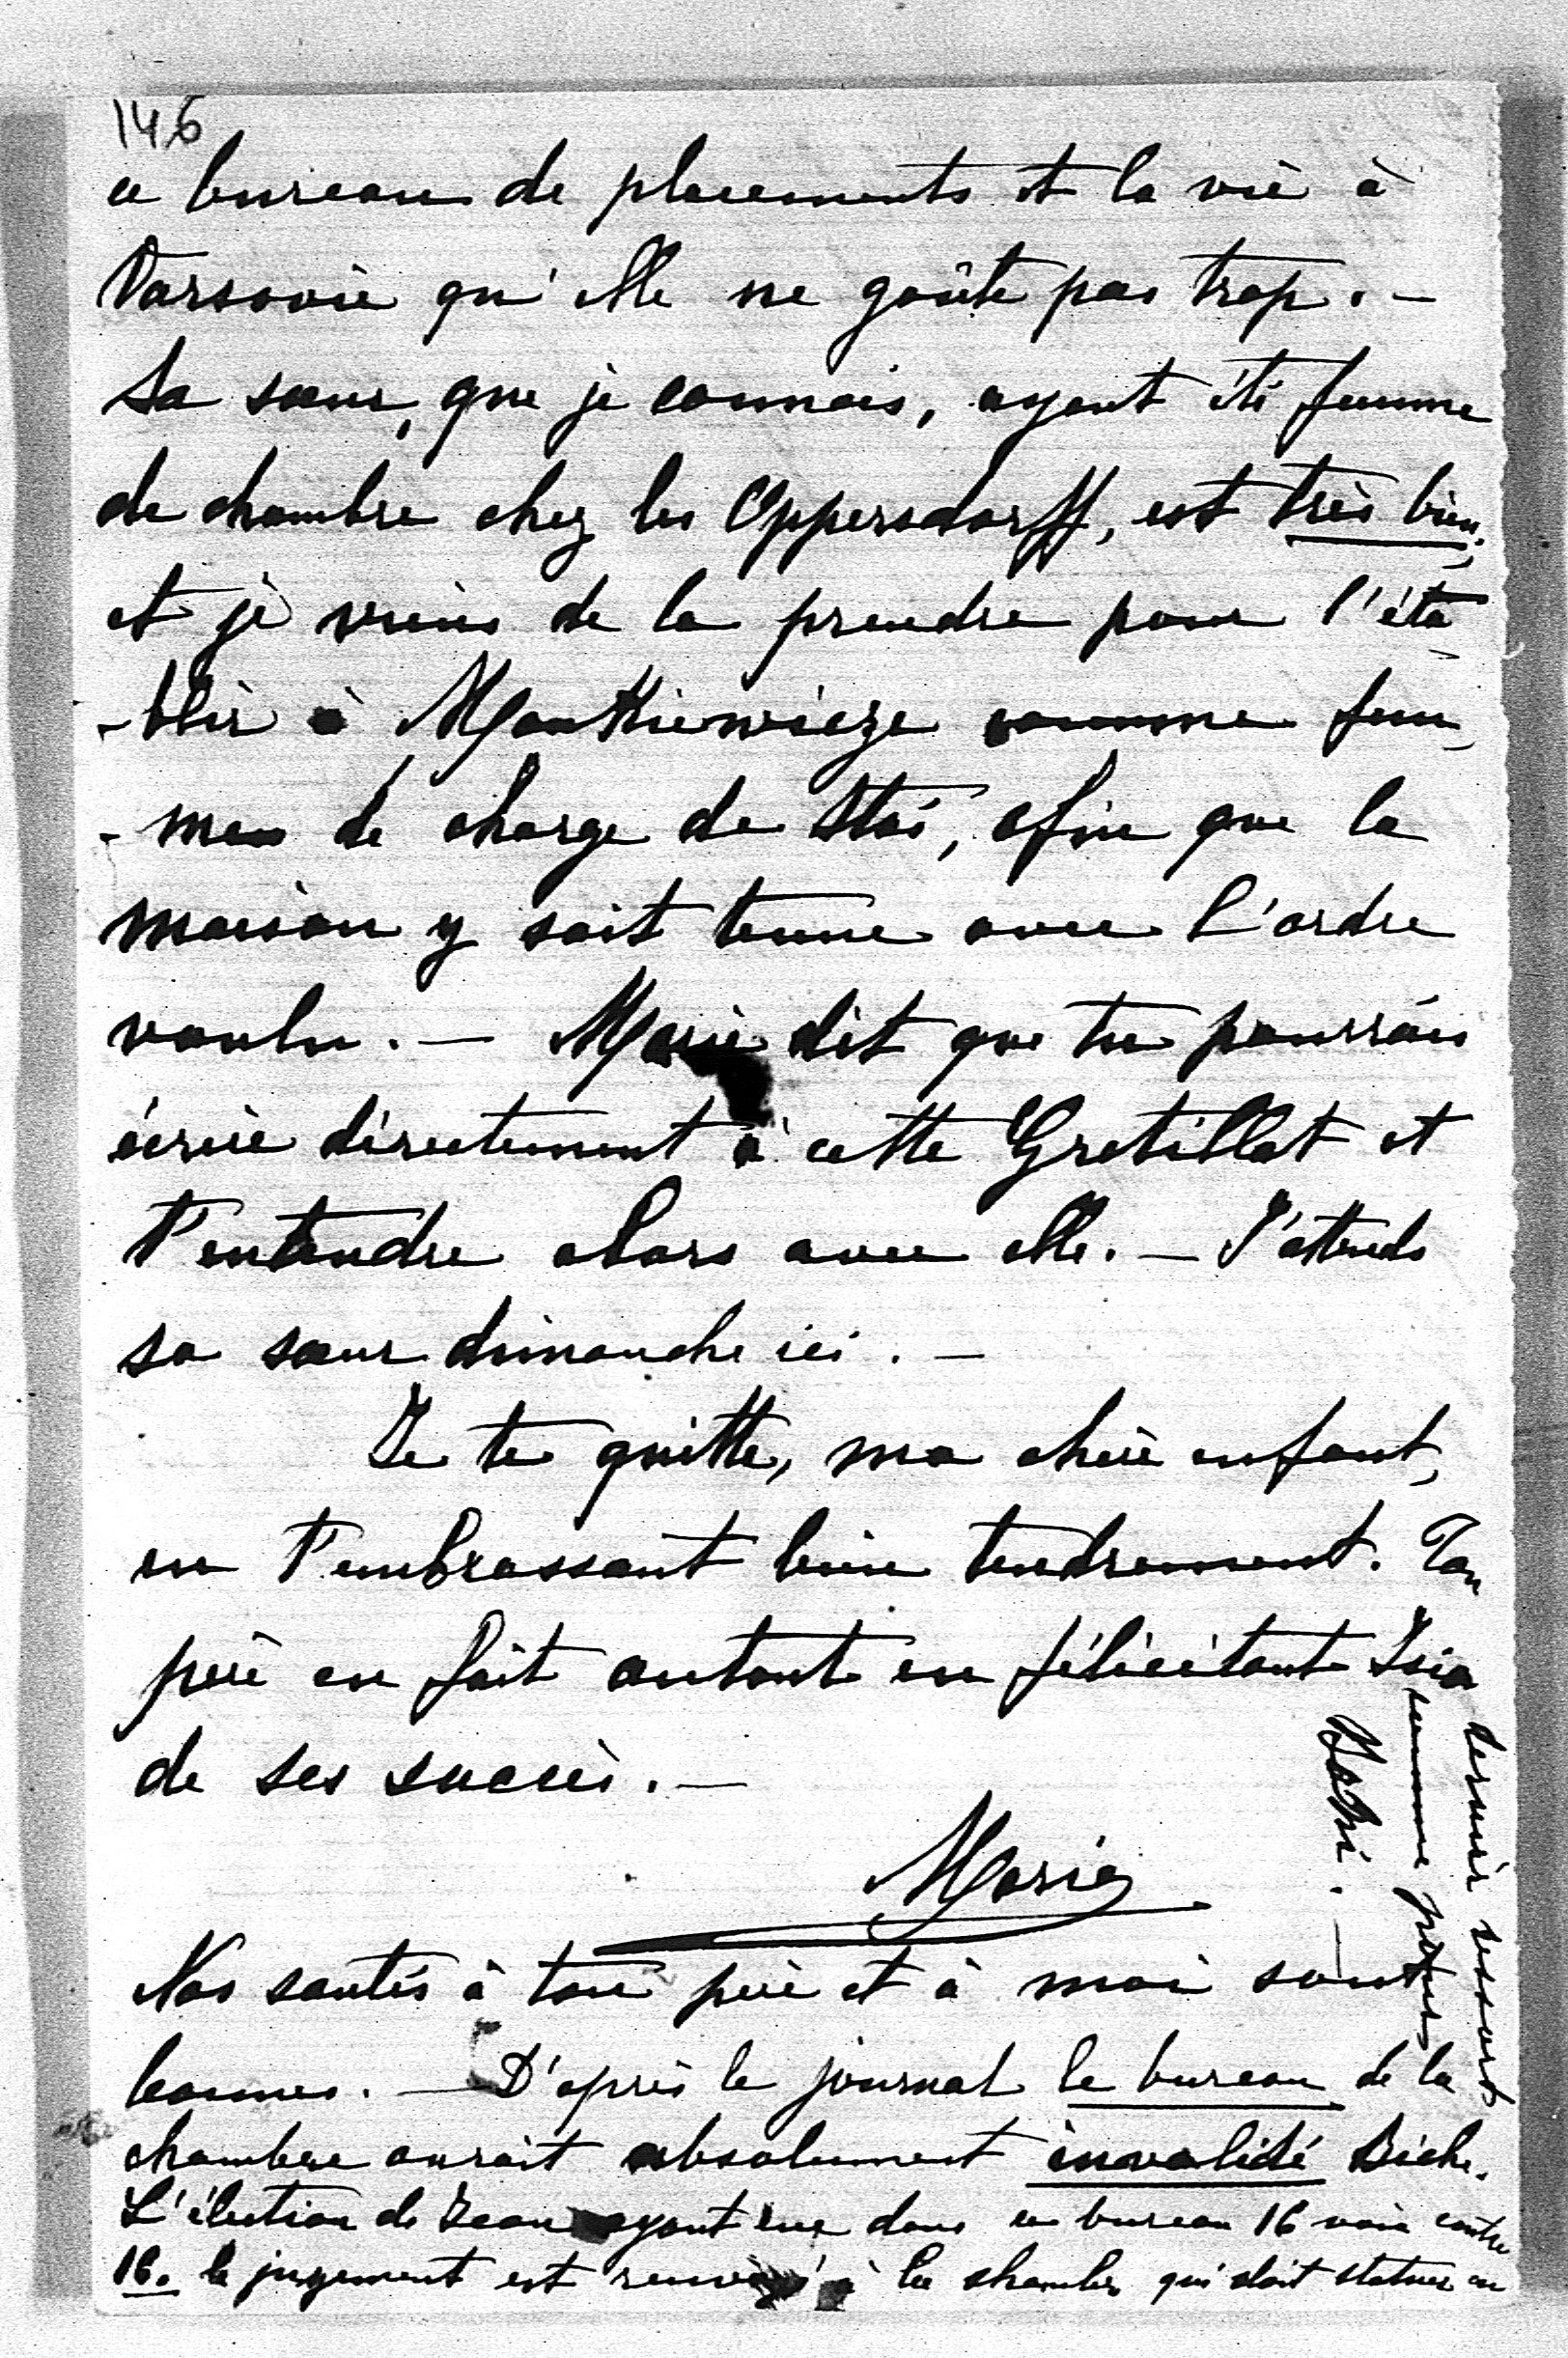 146
ce bureau de placements et la vie à
Varsovie qu'elle ne goûte pas trop. —
Sa sœur, que je connais, ayant été femme
de chambre chez les Oppersdorff, est très bien,
et je viens de la prendre pour l'éta
-blir à Mankiewicze comme fem
-me de charge de Staś, afin que la
maison y soit tenue avec l'ordre
voulu. — Marie dit que tu pourrais
écrire directement à cette Gretillat et
t'entendre alors avec elle. — J'attends
sa sœur dimanche ici. —
Je te quitte, ma chère enfant,
en t'embrassant bien tendrement. Ton
père en fait autant en félicitant Isia
de ses succès. —
Marie
Nos santés à ton père et à moi sont
bonnes. — D'après le journal le bureau de la
chambre aurait absolument invalidé Biche.
L'élection de Jean ayant eue dans ce bureau 16 voix contre
16. le jugement est renvoyé à la chambre qui doit statuer en
dernier ressort
comme pour